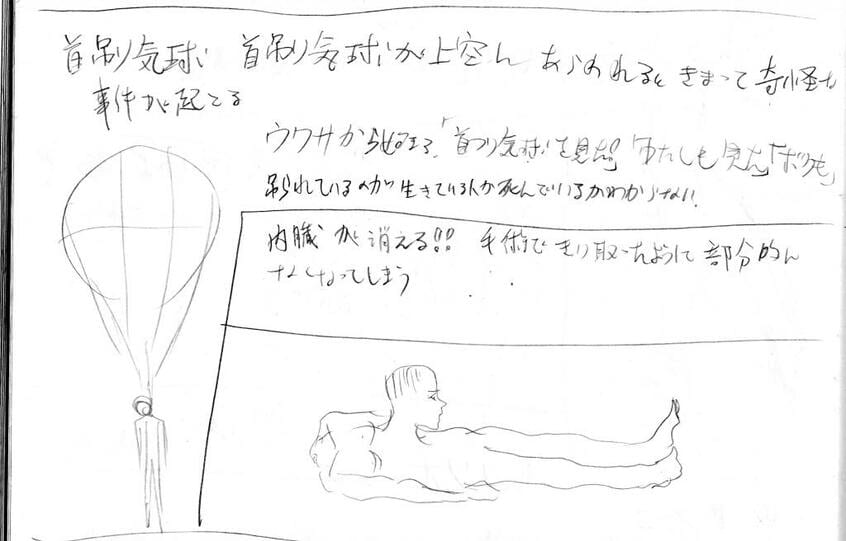 首吊り気球 首吊り気球が上空に あらわれると きまって奇怪な
事件が起こる
ウワサから始まる、「首つり気球を見た」「わたしも見た」「ボクも」
吊られているのが生きている人か死んでいるかわからない
内臓が消える!! 手術で切り取ったように部分的に
なくなってしまう